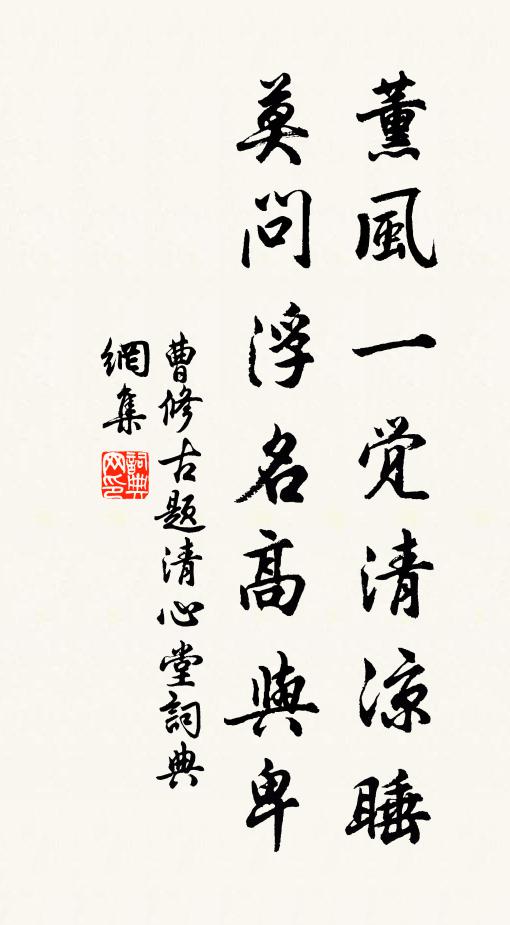 薰風一覺清涼睡
莫問浮名高與卑
曹修古題清心堂詞典
網集
詞典網印